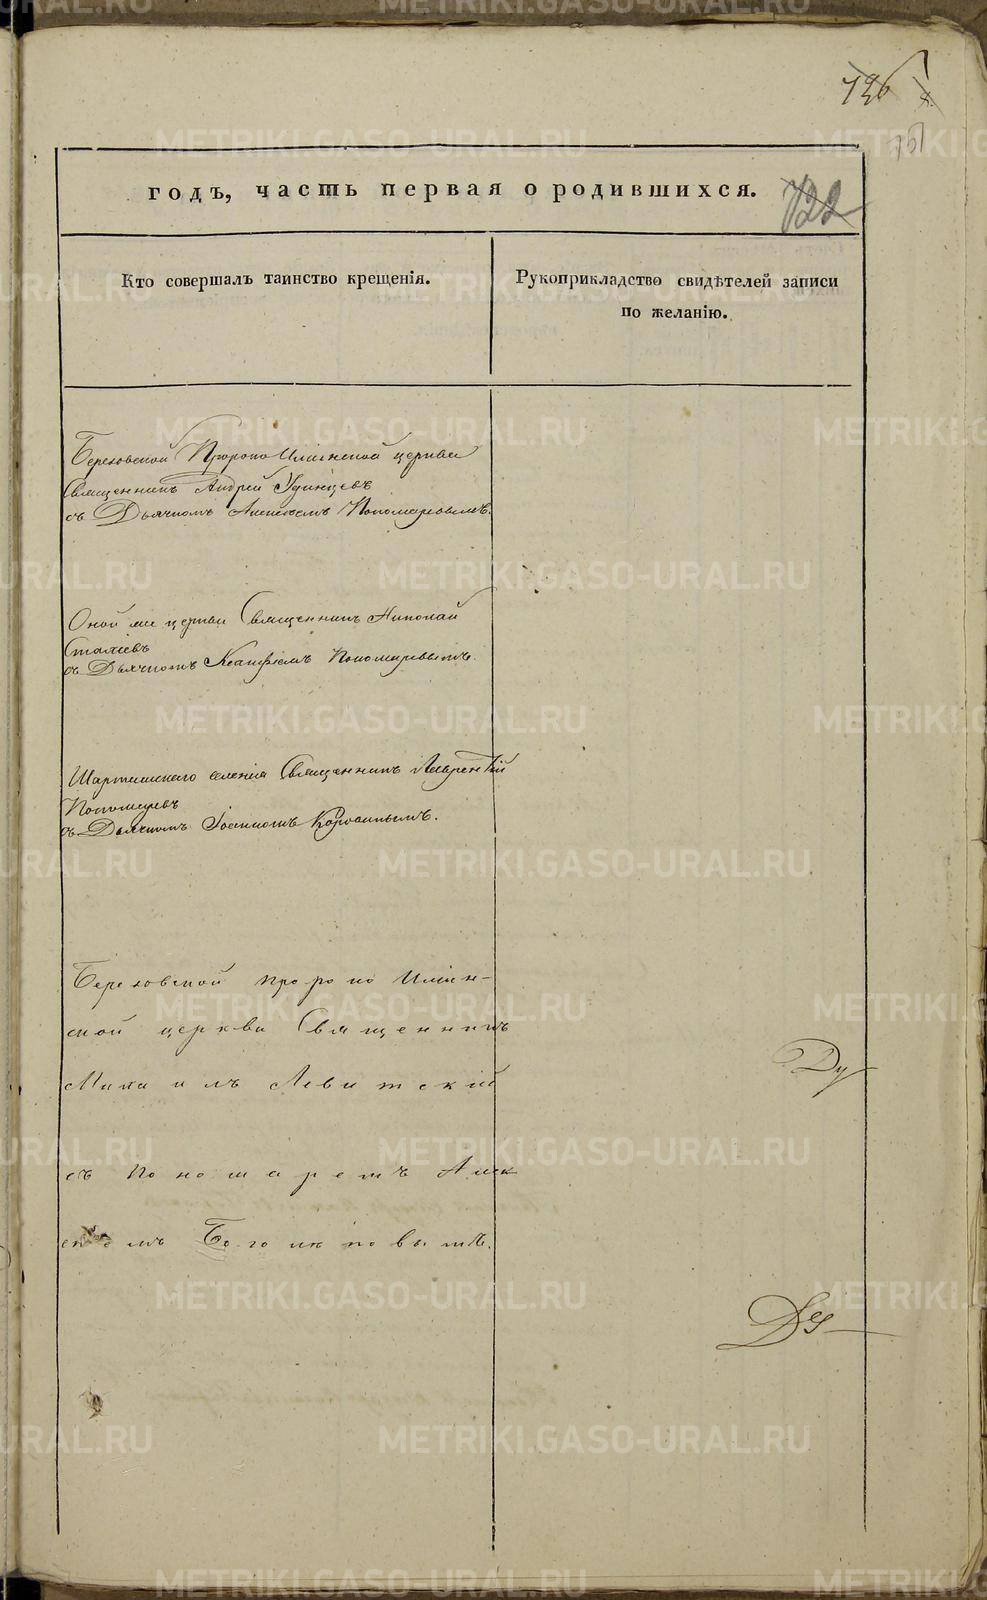 736
годъ, часть первая о родившихся.
722
Кто совершалъ таинство крещенія.
Рукоприкладство свидѣтелей записи
по желанію.
Березовской Пророко Илiинской церкви
Священникъ Андрей Удинцевъ
съ Дьячкомъ Пономаревымъ.
Оной же церкви Священникъ Николай
съ Дьячкомъ Пономаревымъ.
Шарташскаго селенія Священникъ Лаврентій
Пономаревъ
съ Дьячкомъ
Березовской пророко Илiин-
ской церкви Священникъ
Михаилъ Левитский
съ Пономаремъ Алек
METRIKI.GASO-URAL.RU